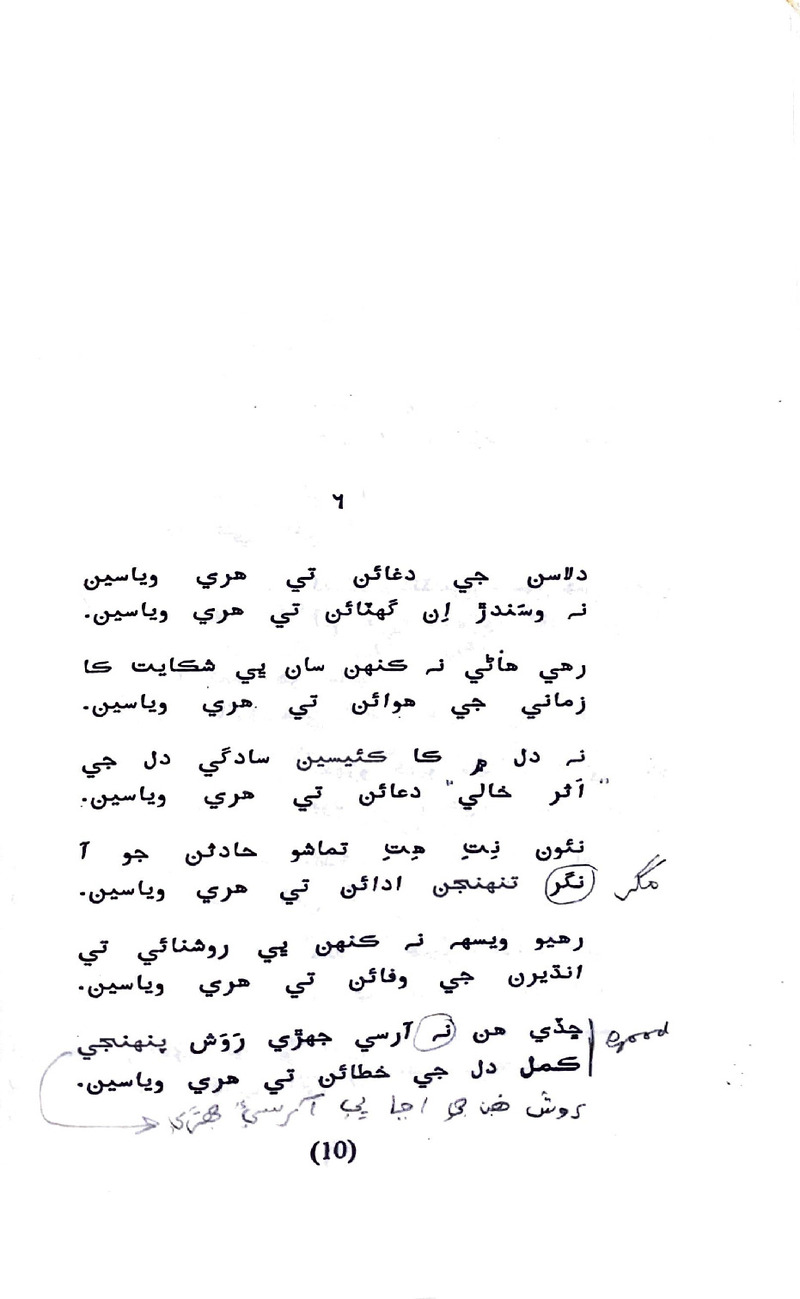 ٦
دلاسن جي دغائن تي هري وياسين
نہ وسَندڙ اِن گهٽائن تي هري وياسين.
رهي هاڻي نہ ڪنهن سان ڀي شڪايت ڪا
زماني جي هوائن تي هري وياسين.
نہ دل ۾ ڪا ڪئيسين سادگي دل جي
"اَثر خالي" دعائن تي هري وياسين.
نئون نِتِ هِتِ تماشو حادثن جو آ
نگر تنهنجن ادائن تي هري وياسين. مگر
رهيو ويسهہ نہ ڪنهن ڀي روشنائي تي
انڌيرن جي وفائن تي هري وياسين.
ڇڏي هن نہ آرسي جهڙي رَوَش پنهنجي good
ڪمل دل جي خطائن تي هري وياسين.
روش هن جي اڃا ڀي آرسيءَ جهڙي
(10)